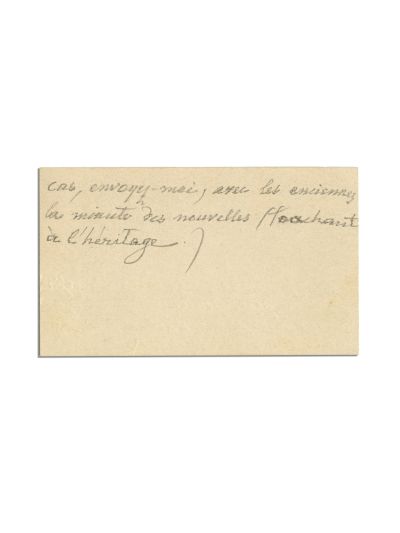 cas, envoyz-moi, avec les anciennes,
la minute des nouvelles (touchant
à l'héritage.)